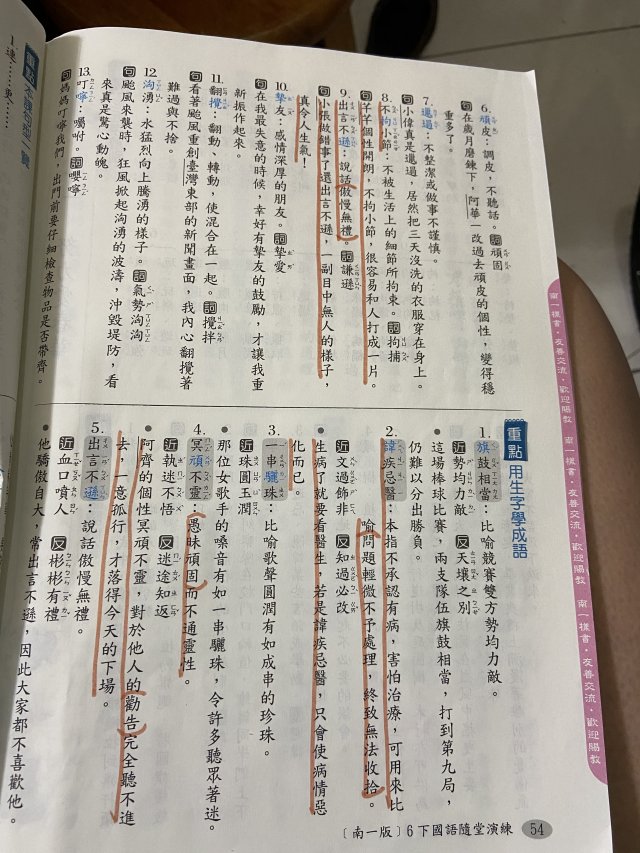 6. 頑皮：調皮，不聽話。詞頑固
句在歲月磨鍊下，阿華一改過去頑皮的個性，變得穩
重多了。
7. 邋遢：不整潔或做事不謹慎。
句小偉真是邋遢，居然把三天沒洗的衣服穿在身上。
8. 不拘小節：不被生活上的細節所拘束。詞拘捕
句羊羊個性開朗，不拘小節，很容易和人打成一片。
9. 出言不遜：說話傲慢無禮。詞謙遜
句小張做錯事了還出言不遜，一副目中無人的樣子，
真令人生氣！
10. 摯友：感情深厚的朋友。詞摯愛
句在我最失意的時候，幸好有摯友的鼓勵，才讓我重
新振作起來。
11. 翻攪：翻動、轉動，使混合在一起。詞攪拌
句看著颱風重創臺灣東部的新聞畫面，我內心翻攪著
難過與不捨。
12. 洶湧：水猛烈向上騰湧的樣子。詞氣勢洶洶
句颱風來襲時，狂風掀起洶湧的波濤，沖毀堤防，看
來真是驚心動魄。
13. 叮嚀：囑咐。詞嚶嚀
句媽媽叮嚀我們，出門前要仔細檢查物品是否帶齊。
重點 本課句型一覽
重點 用生字學成語
1. 旗鼓相當：比喻競賽雙方勢均力敵。
近勢均力敵 反天壤之別
•這場棒球比賽，兩支隊伍旗鼓相當，打到第九局，
仍難以分出勝負。
2. 諱疾忌醫：本指不承認有病，害怕治療，可用來比
喻問題輕微不予處理，終致無法收拾。
近文過飾非 反知過必改
•生病了就要看醫生，若是諱疾忌醫，只會使病情惡
化而已。
3. 一串驪珠：比喻歌聲圓潤有如成串的珍珠。
近珠圓玉潤
•那位女歌手的嗓音有如一串驪珠，令許多聽眾著迷。
4. 冥頑不靈：愚昧頑固而不通靈性。
近執迷不悟 反迷途知返
•阿齊的個性冥頑不靈，對於他人的勸告完全聽不進
去，一意孤行，才落得今天的下場。
5. 出言不遜：說話傲慢無禮。
近血口噴人 反彬彬有禮
•他驕傲自大，常出言不遜，因此大家都不喜歡他。
南一樣書・友善交流・歡迎賜教 南一樣書・友善交流・歡迎賜教 南一樣書・友善交流・歡迎賜教
〔南一版〕6下國語隨堂演練 54